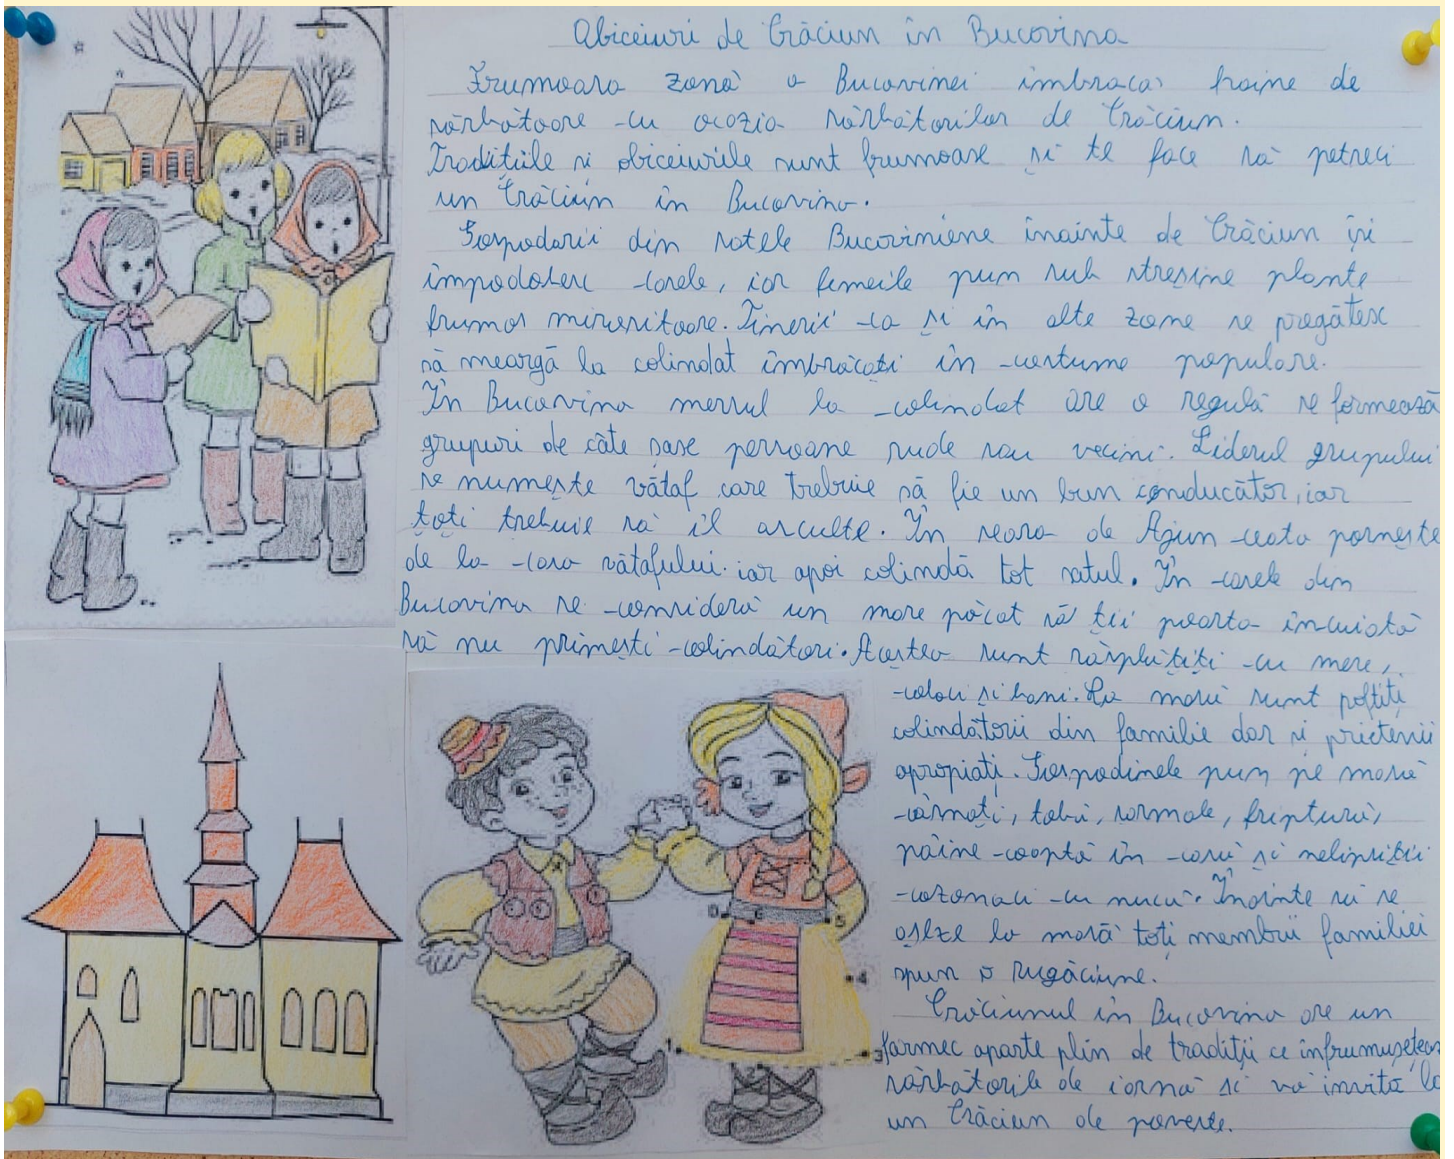 Obiceiuri de Crăciun în Bucovina
Frumoasa zonă a Bucovinei îmbracă haine de
sărbătoare cu ocazia sărbătorilor de Crăciun.
Tradițiile și obiceiurile sunt frumoase și te face să petreci
un Crăciun în Bucovina.
Gospodarii din satele Bucoviniene înainte de Crăciun își
împodobesc casele, iar femeile pun sub streșine plante
frumos mirositoare. Tinerii ca și în alte zone se pregătesc
să meargă la colindat îmbrăcați în costume populare.
În Bucovina mersul la colindat are o regulă se formează
grupuri de câte șase persoane rude sau vecini. Liderul grupului
se numește vătaf care trebuie să fie un bun conducător, iar
toți trebuie să îl asculte. În seara de Ajun ceata pornește
de la casa vătafului. iar apoi colindă tot satul. În casele din
Bucovina se consideră un mare păcat să ții poarta încuiată
să nu primești colindători. Aceștea sunt răsplătiți cu mere,
colaci și bani. La masă sunt poftiți
colindătorii din familie dar și prietenii
apropiați. Gospodinele pun pe masă
cârnați, tobă, sarmale, friptură,
pâine coaptă în casă și nelipsiții
cozonaci cu nucă. Înainte să se
așeze la masă toți membrii familiei
spun o rugăciune.
Crăciunul în Bucovina are un
farmec aparte plin de tradiții ce înfrumusețeaz
sărbătorile de iarnă și vă invită la
un Crăciun de poveste.
0 5
4
1 2 3